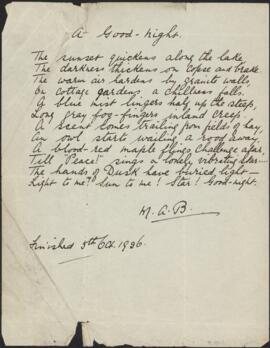 A Good-night.
The sunset quickens along the lake,
The darkness thickens on copse and brake
The warm air hardens by granite walls,
On cottage gardens a chillness falls.
A blue mist lingers half up the steep,
Long gray fog-fingers inland creep.
A scent comes trailing from fields of hay,
An owl starts wailing a rood away,
A blood-red maple flings challenge afar,
Till "Peace!" sings a lonely vibrating star—
The hands of Dusk have buried light—
Light to me! Sun to me! Star! Good-night.
M. A. B.
Finished 5th Oct. 1926.